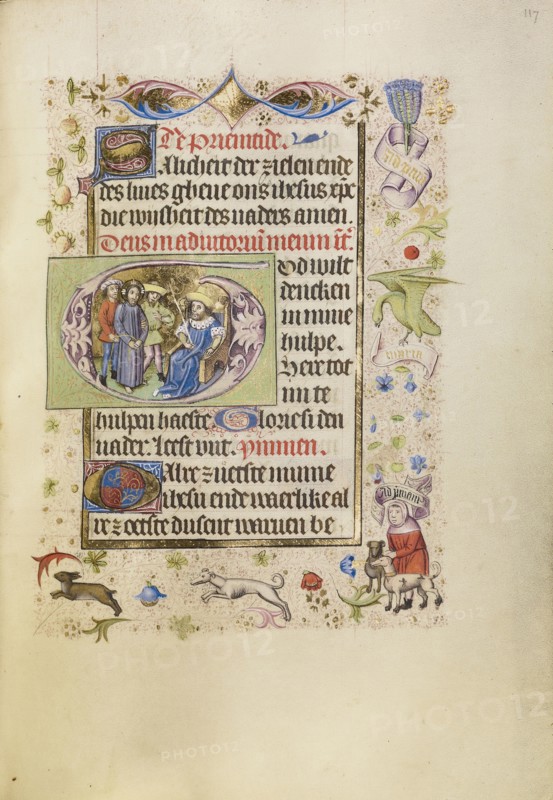 117
Te priemtide.
Salicheit der zielen ende
des liues gheue ons ihesus xpc
die wijsheit des uaders amen.
Deus in adiutoriū meum īt.
God wilt
dencken
in mine
hulpe.
Here tot
mi te
hulpen haeste Glorie si den
uader. Leest vut. ymmen.
Alre zuetste mume
ihesu ende waerlike al
re zoetste dusent waruen be
maria
PHOTO12